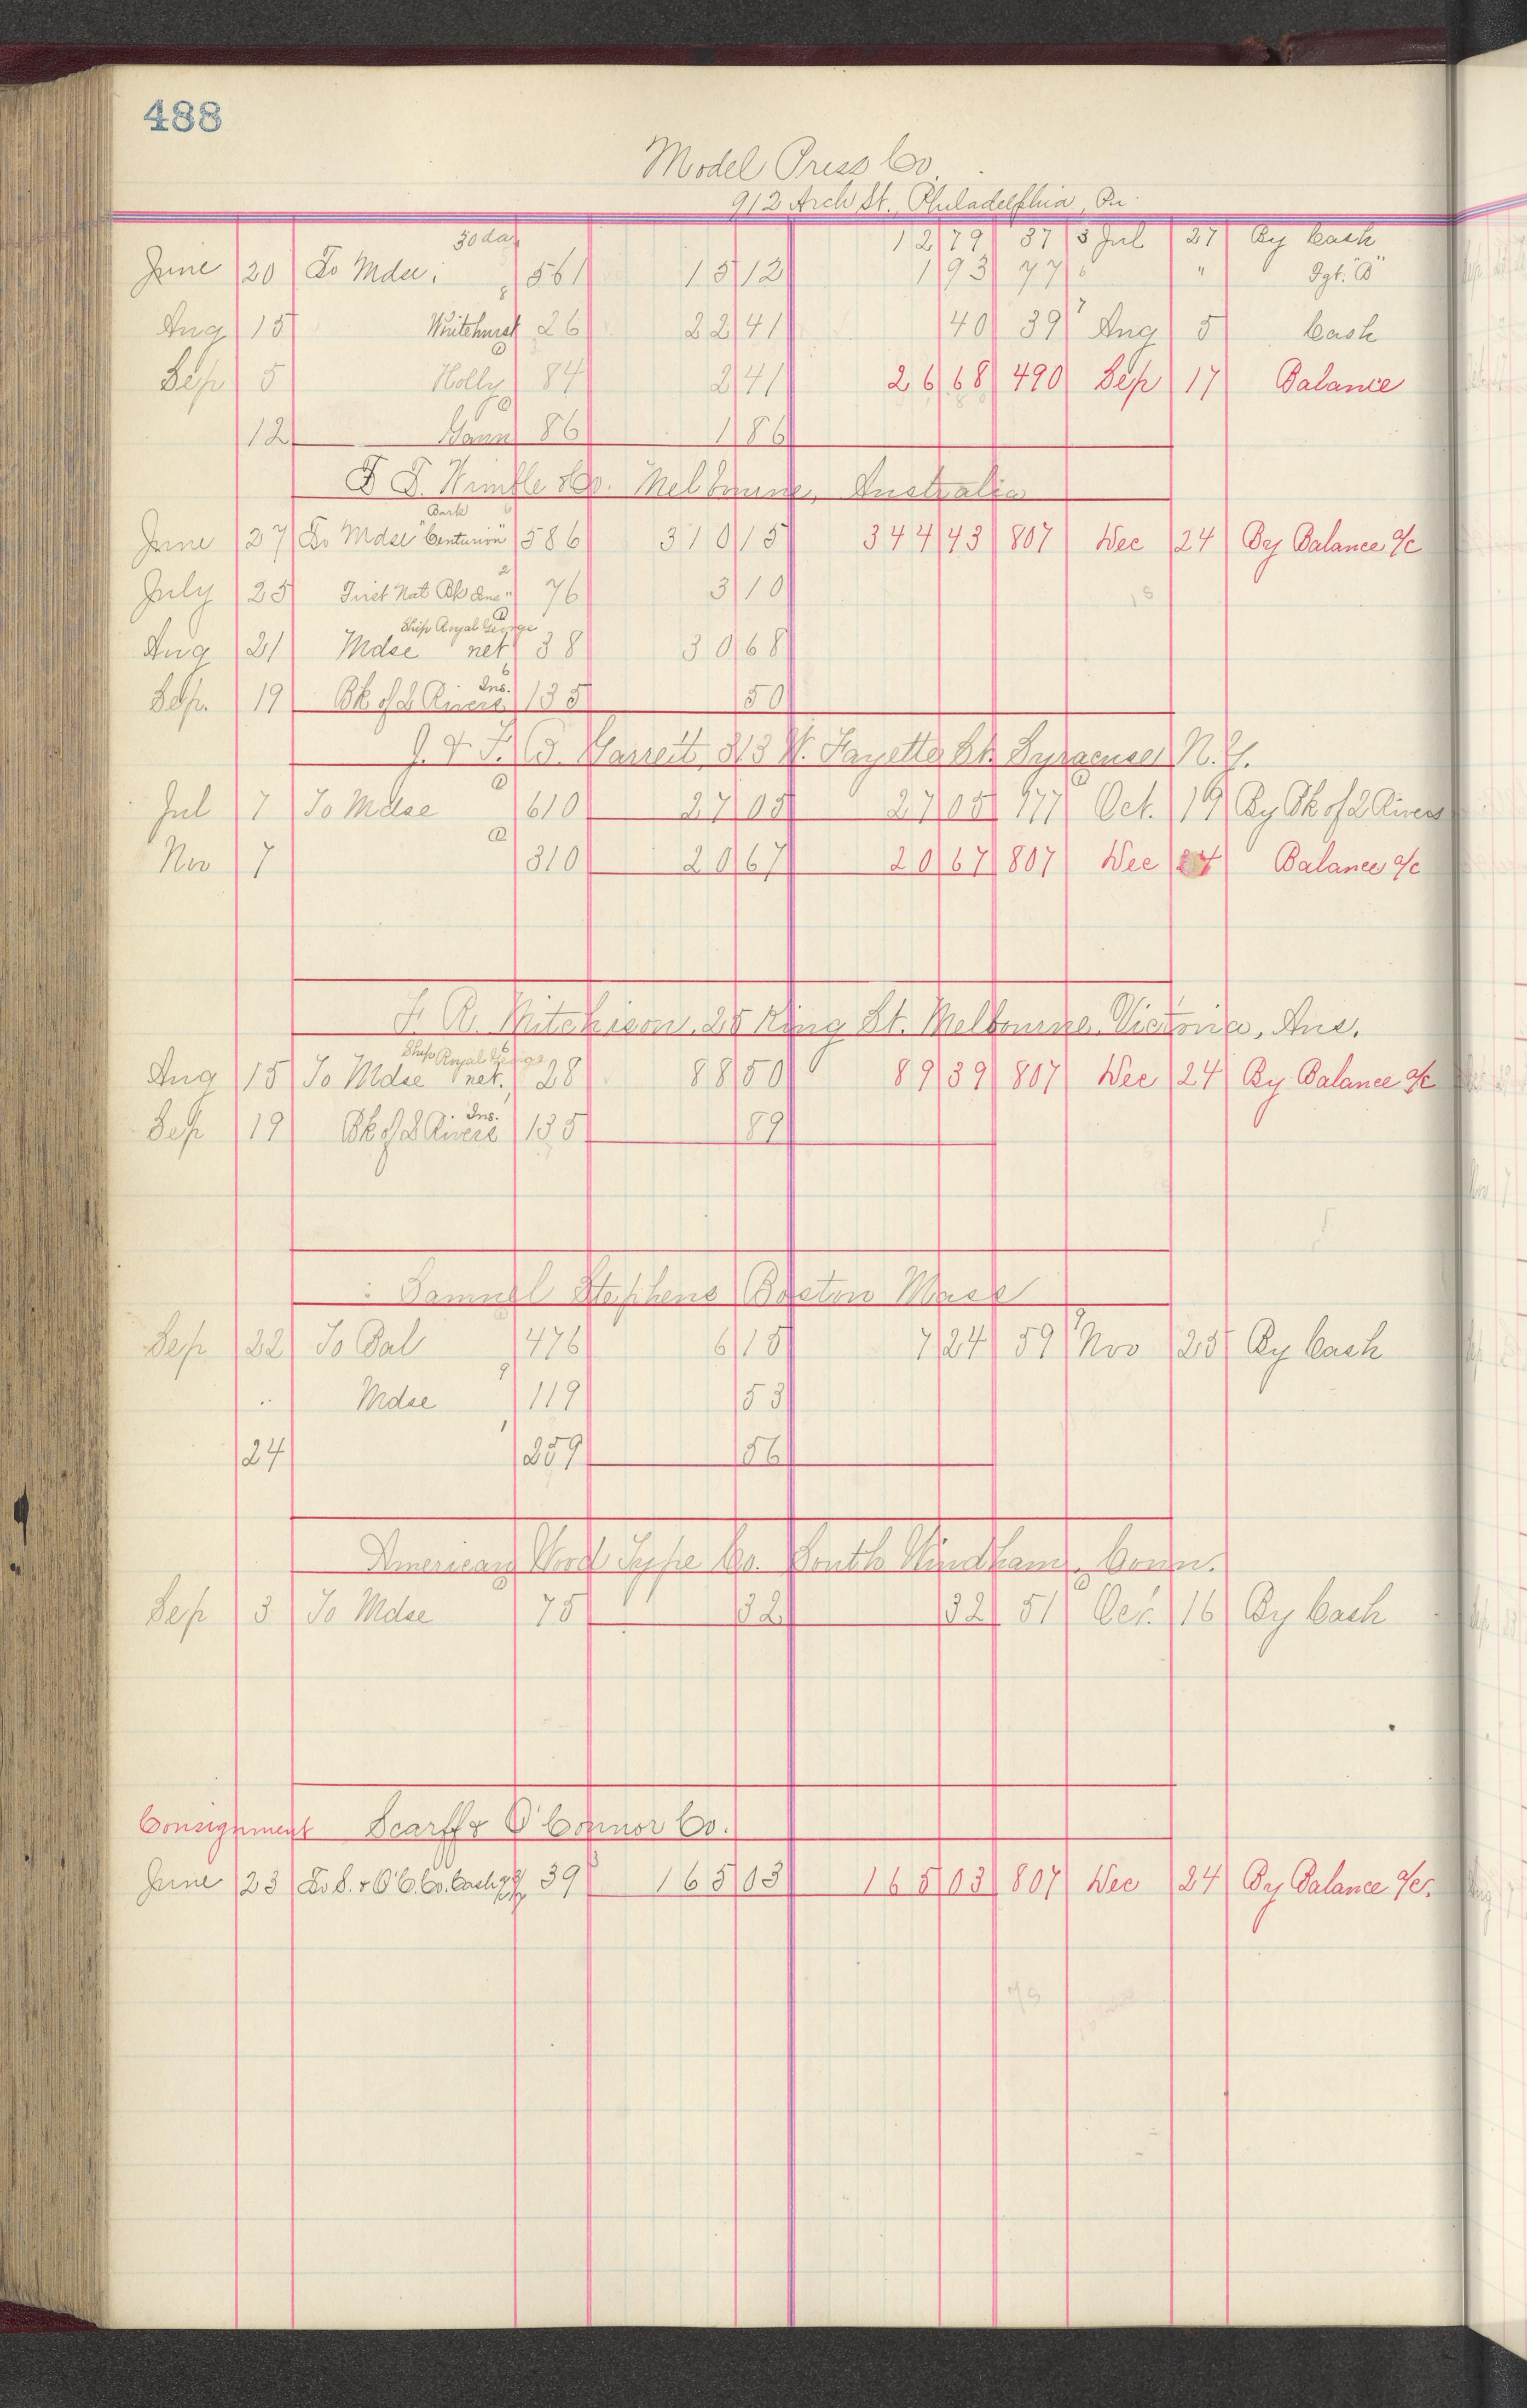 488
Model Press Co.
912 Arch St., Philadelphia, Pa.
30 da 12 79 37 5 Jul 27 By Cash
June 20 To Mdse. 561 15 12 1 93 77 6 " Agt. "B"
Aug 15 Whitehurst 8 26 22 41 40 39 7 Aug 5 Cash
Sep 5 Holly 84 2 41 26 68 490 Sep 17 Balance
12 86 1 86
F. T. Wimble & Co. Melbourne, Australia
June 27 To Mdse Bark "Centurion" 586 310 15 344 43 807 Dec 24 By Balance a/c
July 25 First Nat Bk Ins " 2 76 3 10
Aug 21 Mdse Ship Royal George net 38 30 68
Sep. 19 Bk of 2 Rivers Ins. 6 135 50
J. & F. B. Garrett, 313 W. Fayette St. Syracuse, N.Y.
Jul 7 To Mdse 610 27 05 27 05 177 Oct. 19 By Bk of 2 Rivers
Nov 7 310 20 67 20 67 807 Dec 24 Balance a/c
F. R. Mitchison, 25 King St. Melbourne, Victoria, Aus.
Aug 15 To Mdse Ship Royal George net. 28 88 50 89 39 807 Dec 24 By Balance a/c
Sep 19 Bk of 2 Rivers Ins. 135 89
Samuel Stephens Boston Mass
Sep 22 To Bal 476 6 15 7 24 59 9 Nov 25 By Cash
" Mdse 9 119 53
24 1 259 56
American Wood Type Co. South Windham, Conn.
Sep 3 To Mdse 75 32 32 51 Oct. 16 By Cash
Consignment Scarff & O'Connor Co.
June 23 To S. & O'C. Co. Cash 39 165 03 165 03 807 Dec 24 By Balance a/c.